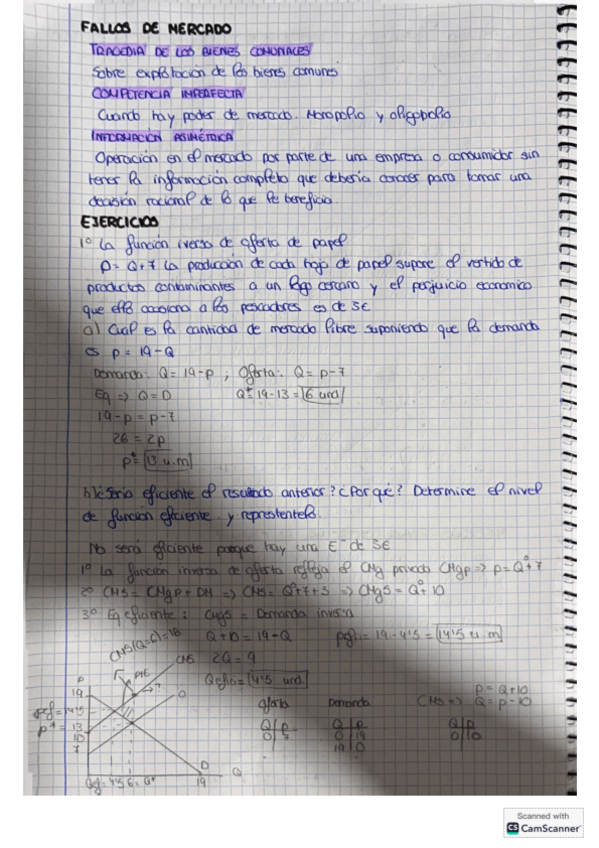 FALLOS DE MERCADO
TRAGEDIA DE LOS BIENES COMUNALES
Sobre explotacion de los bienes comunes
COMPETENCIA IMPERFECTA
Cuando hay poder de mercado. Monopolio y oligopolio
INFORMACIÓN ASIMÉTRICA
Operación en el mercado por parte de una empresa o consumidor sin
tener la información completa que debería conocer para tomar una
decisión racional de lo que le beneficia.
EJERCICIOS
1º La función inversa de oferta de papel
p = Q+7 La producción de cada hoja de papel supone el vertido de
productos contaminantes a un lago cercano y el perjuicio economico
que ello ocasiona a los pescadores es de 3€
a) Cual es la cantidad de mercado libre suponiendo que la demanda
es p = 19-Q
Demanda: Q = 19-p ; Oferta: Q = p-7
Eq => Q = D Q* = 19-13 = 6 und
19-p = p-7
26 = 2p
p* = 13 u.m
b) ¿Seria eficiente el resultado anterior? ¿Por qué? Determine el nivel
de función eficiente y representelo.
No será eficiente porque hay una E⁻ de 3€
1º La función inversa de oferta refleja el CMg privado CMgp => p = Q+7
2º CMS = CMgp + DM => CMS = Q+7+3 => CMgS = Q+10
3º Eq eficiente: CMgS = Demanda inversa
Q+10 = 19-Q pefi = 19-4'5 = 14'5 u.m
2Q = 9
Qefic = 4'5 und.
CMS(Q=6)=16
CMS
PIE
P
O
19
pef = 14'5
p* = 13
10
7
Qef = 4'5 6 = Q*
D
19
Q
Oferta
Q P
0 7
Demanda
Q P
0 19
19 0
CMS => P = Q+10
Q = p-10
Q P
0
Scanned with
CS CamScanner